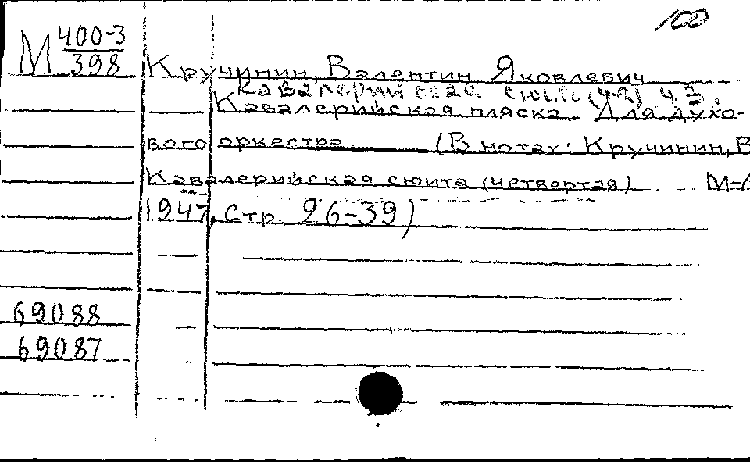 100
М 400-3
398
Кручинин Валентин Яковлевич
Кавалерийская сюита (4-я) ч. 3.
Кавалерийская пляска. Для духо-
вого оркестра (В нотах: Кручинин, В
Кавалерийская сюита (четвертая) М-Л
1947, Стр. 26-39)
69088
69087